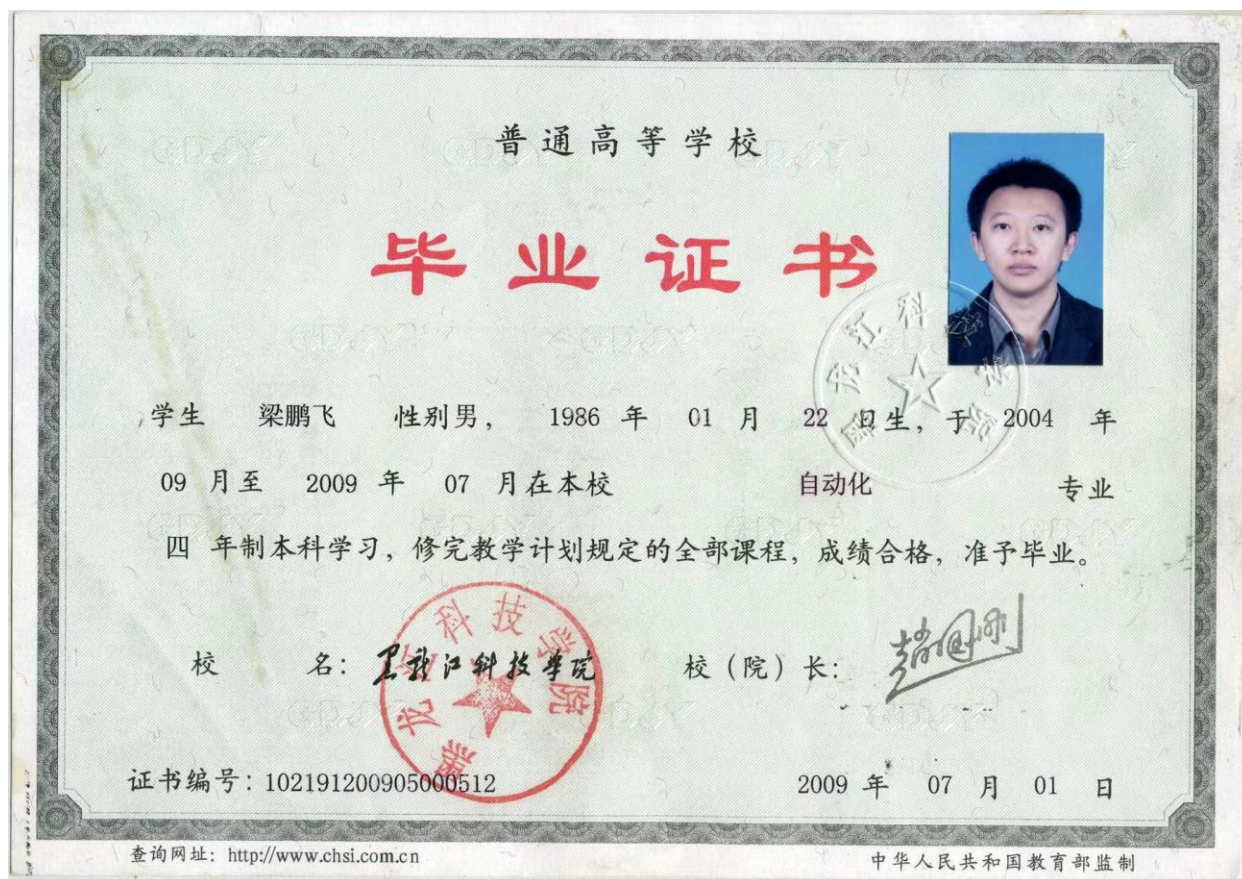 普通高等学校
毕业证书
学生 梁鹏飞 性别男， 1986 年 01 月 22 日生，于 2004 年
09 月至 2009 年 07 月在本校 自动化 专业
四 年制本科学习，修完教学计划规定的全部课程，成绩合格，准予毕业。
校 名：黑龙江科技学院 校（院）长：
黑龙江科技学院
证书编号：102191200905000512 2009 年 07 月 01 日
查询网址：http://www.chsi.com.cn 中华人民共和国教育部监制